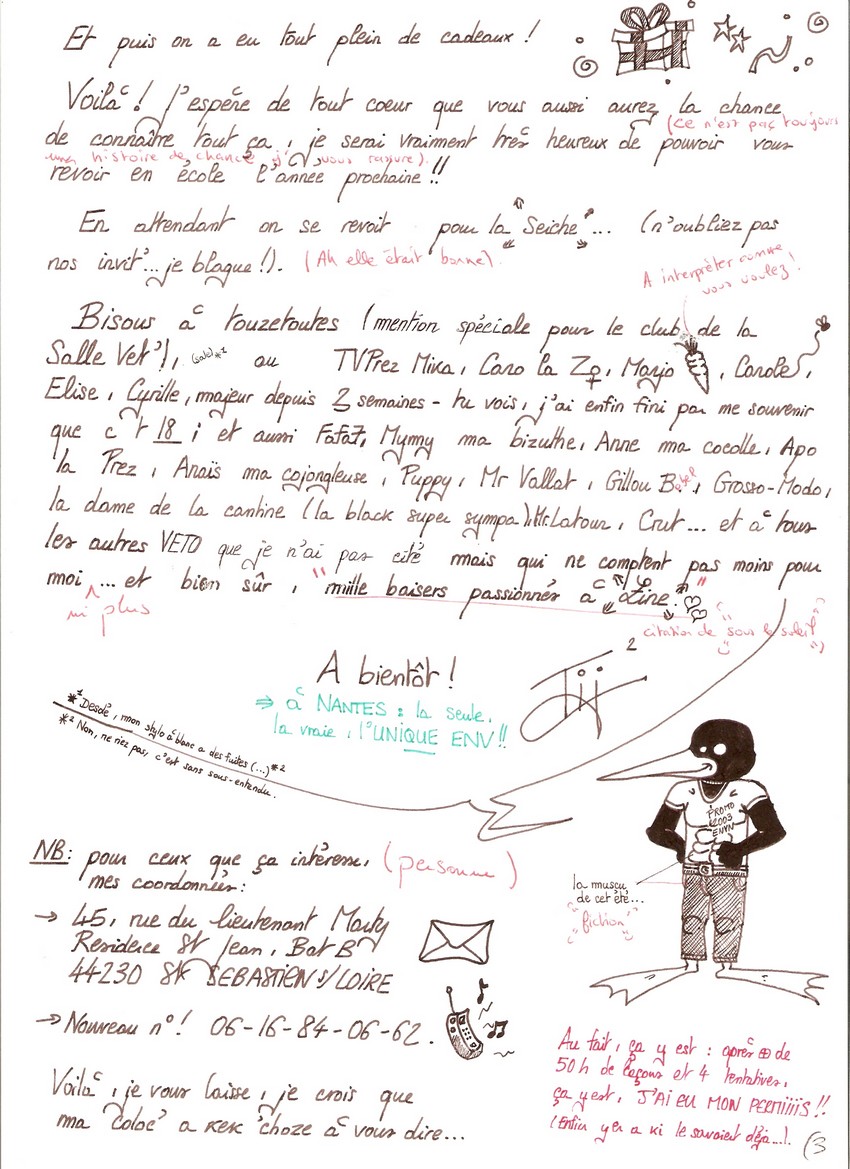 Et puis on a eu tout plein de cadeaux !
Voilà ! J'espère de tout coeur que vous aussi aurez la chance
(ce n'est pas toujours
de connaître tout ça, je serai vraiment très heureux de pouvoir vous
une histoire de chance j' vous rassure).
revoir en école l'année prochaine !!
En attendant on se revoit pour la "Seiche"... (n'oubliez pas
nos invit'... je blague !). (Ah elle était bonne).
A interpréter comme
vous voulez !
Bisous à touzetoutes (mention spéciale pour le club de la
Salle Vet'), (sale)*1 au TVPrez Mika, Caro la Zo, Marjo , Carole,
Elise, Cyrille, majeur depuis 2 semaines - tu vois, j'ai enfin fini par me souvenir
que c't 18 ; et aussi Fafa7, Mymy ma bizuthe, Anne ma cocolle, Apo
la Prez, Anaïs ma cojongleuse, Puppy, Mr Vallat, Gillou B , Grosso-Modo,
la dame de la cantine (la black super sympa), Mr Latour, Crut... et à tous
les autres VETO que je n'ai pas cité mais qui ne comptent pas moins pour
moi ... et bien sûr, "mille baisers passionnés à Line."
ni plus
citation de "sous le soleil"
A bientôt !
2
⇒ à NANTES : la seule,
la vraie, l'UNIQUE ENV !!
*1 Desolé, mon stylo à blanc a des fuites (...)*2
*2 Non, ne riez pas, c'est sans sous-entendu.
PROMO
2003
ENVN
NB: pour ceux que ça intéresse, (personne)
mes coordonnées :
la muscu
de cet été...
"fiction"
→ 45, rue du lieutenant Marty
Residence St Jean, Bat B
44230 St SEBASTIEN s/ LOIRE
→ Nouveau n° ! 06-16-84-06-62.
Au fait, ça y est : après ⊕ de
50 h de leçons et 4 tentatives,
ça y est, J'AI EU MON PERMIIIIS !!
(Enfin y en a ki le savaient déjà...).
Voilà, je vous laisse, je crois que
ma 'coloc' a kek 'choze à vous dire...
(3